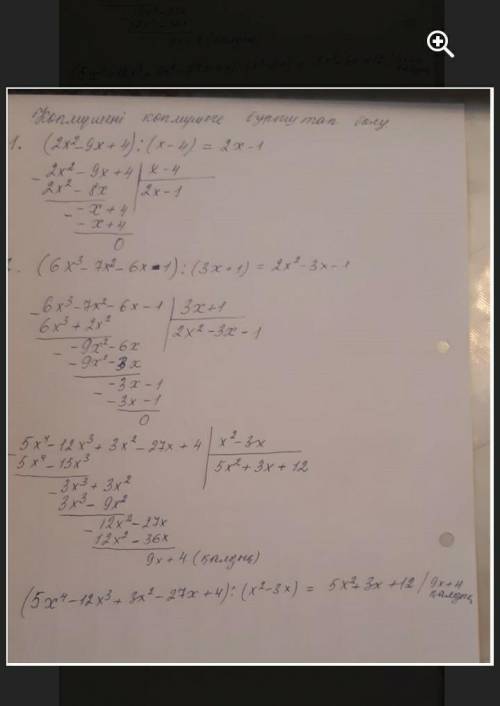 Көпмүшені көпмүшеге бұрыштап бөлу.
1. (2x²-9x+4):(x-4) = 2x-1
- 2x²-9x+4 | x-4
2x²-8x | 2x-1
- -x+4
-x+4
0
2. (6x³-7x²-6x-1):(3x+1) = 2x²-3x-1
- 6x³-7x²-6x-1 | 3x+1
6x³+2x² | 2x²-3x-1
- -9x²-6x
-9x²-3x
- -3x-1
-3x-1
0
- 5x⁴-12x³+3x²-27x+4 | x²-3x
5x⁴-15x³ | 5x²+3x+12
- 3x³+3x²
3x³-9x²
- 12x²-27x
12x²-36x
9x+4 (қалдық)
(5x⁴-12x³+3x²-27x+4):(x²-3x) = 5x²+3x+12 / 9x+4
қалдық